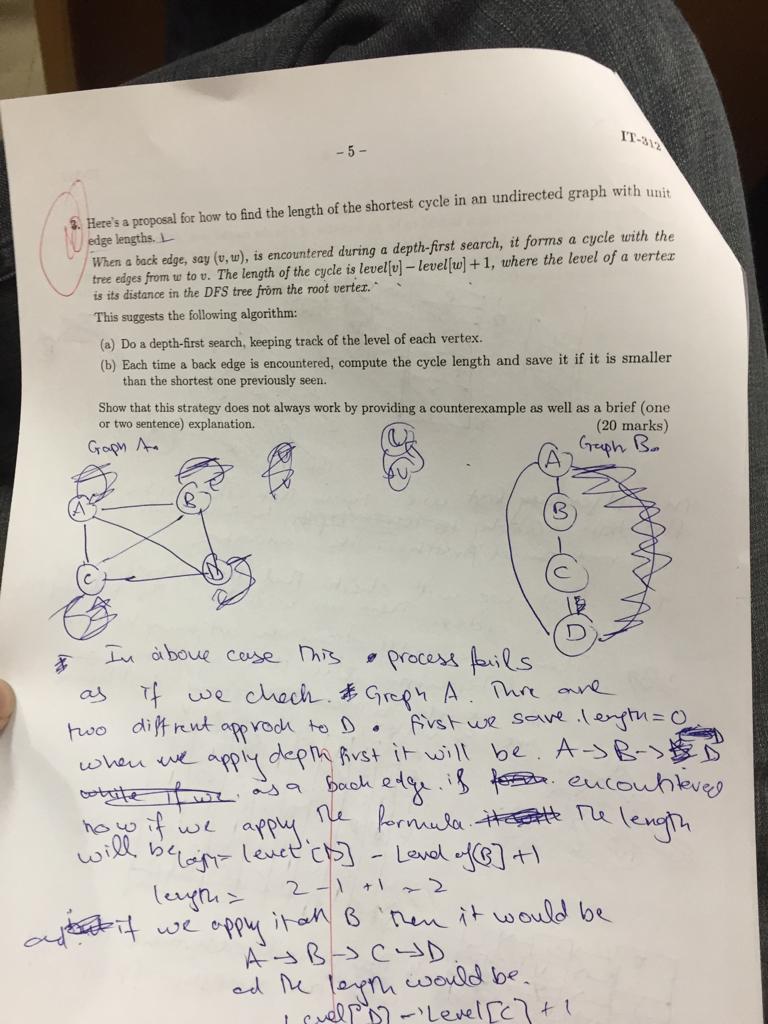 - 5 -
IT-312
3. Here's a proposal for how to find the length of the shortest cycle in an undirected graph with unit
edge lengths.
When a back edge, say (v, w), is encountered during a depth-first search, it forms a cycle with the
tree edges from w to v. The length of the cycle is level[v] − level[w] + 1, where the level of a vertex
is its distance in the DFS tree from the root vertex.
This suggests the following algorithm:
(a) Do a depth-first search, keeping track of the level of each vertex.
(b) Each time a back edge is encountered, compute the cycle length and save it if it is smaller
than the shortest one previously seen.
Show that this strategy does not always work by providing a counterexample as well as a brief (one
or two sentence) explanation.
(20 marks)
Graph A.
Graph B.
A
B
C
D
A
B
C
D
In above case this process fails
as if we check Graph A. There are
two diffrent approch to D. first we save length = 0
when we apply depth first it will be. A → B → D
as a back edge is encountered
now if we apply the formula the length
will be level [D] - Level of [B] + 1
length = 2 - 1 + 1 = 2
and if we apply it on B then it would be
A → B → C → D
ad the length would be.
Level[D] - Level[C] + 1